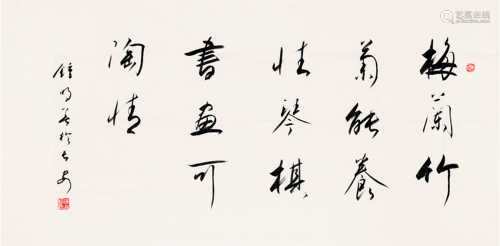 梅蘭竹
菊能養
性琴棋
書畫可
陶情
鍾明善於長安